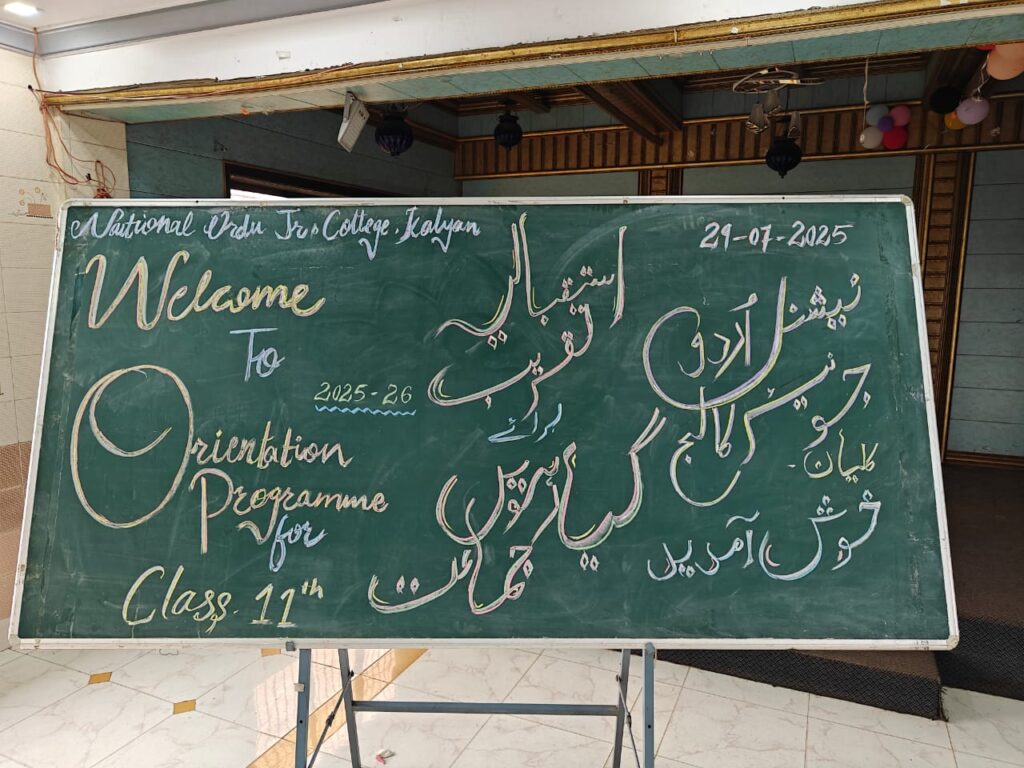 Naitional Urdu Jr. College, Kalyan
29-07-2025
Welcome
To
2025-26
Orientation
Programme
for
Class. 11th
نیشنل اُردو
جونیئر کالج
کلیان.
خوش آمدید
استقبالیہ
تقریب
برائے
گیارہویں
جماعت